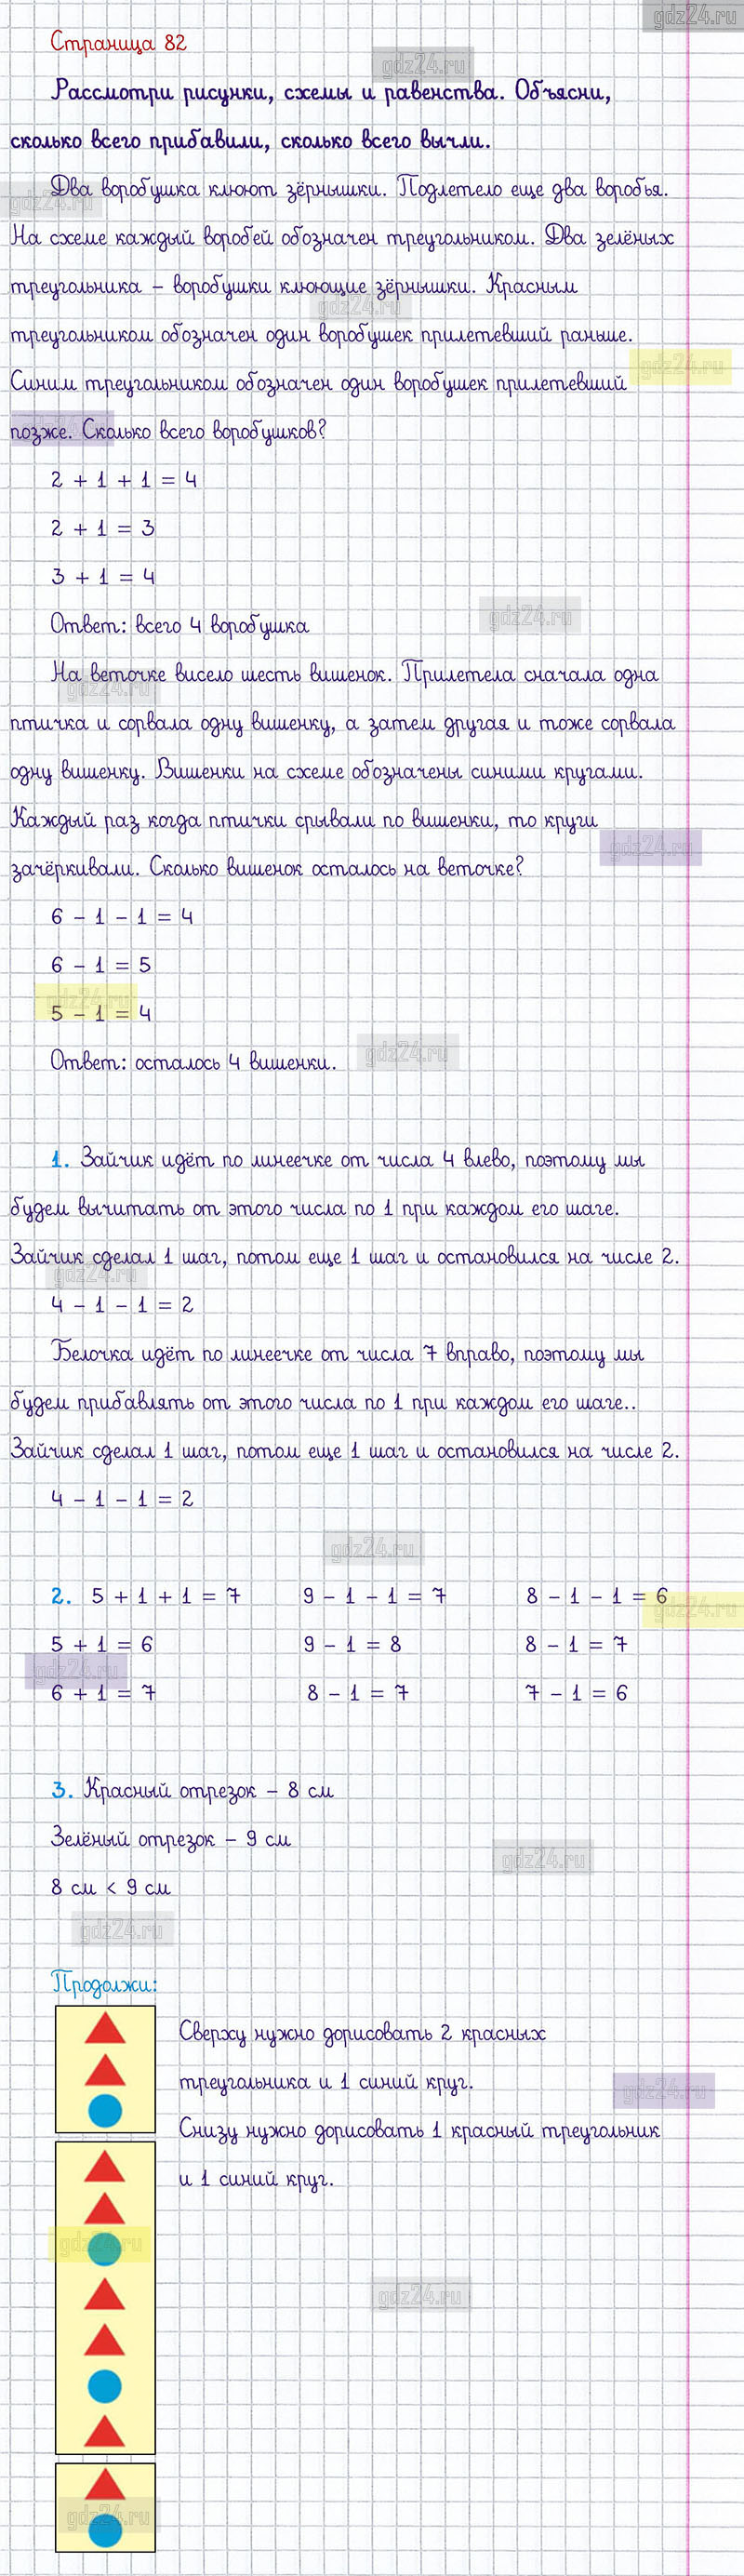 gdz24.ru
Страница 82
gdz24.ru
Рассмотри рисунки, схемы и равенства. Объясни,
сколько всего прибавили, сколько всего вычли.
Два воробушка клюют зёрнышки. Подлетело еще два воробья.
gdz24.ru
На схеме каждый воробей обозначен треугольником. Два зелёных
треугольника – воробушки клюющие зёрнышки. Красным
gdz24.ru
треугольником обозначен один воробушек прилетевший раньше.
gdz24.ru
Синим треугольником обозначен один воробушек прилетевший
позже. Сколько всего воробушков?
2 + 1 + 1 = 4
2 + 1 = 3
3 + 1 = 4
gdz24.ru
Ответ: всего 4 воробушка
На веточке висело шесть вишенок. Прилетела сначала одна
gdz24.ru
птичка и сорвала одну вишенку, а затем другая и тоже сорвала
одну вишенку. Вишенки на схеме обозначены синими кругами.
Каждый раз когда птички срывали по вишенки, то круги
gdz24.ru
зачёркивали. Сколько вишенок осталось на веточке?
6 – 1 – 1 = 4
6 – 1 = 5
gdz24.ru
5 – 1 = 4
gdz24.ru
Ответ: осталось 4 вишенки.
1. Зайчик идёт по линеечке от числа 4 влево, поэтому мы
будем вычитать от этого числа по 1 при каждом его шаге.
Зайчик сделал 1 шаг, потом еще 1 шаг и остановился на числе 2.
gdz24.ru
4 – 1 – 1 = 2
Белочка идёт по линеечке от числа 7 вправо, поэтому мы
будем прибавлять от этого числа по 1 при каждом его шаге..
Зайчик сделал 1 шаг, потом еще 1 шаг и остановился на числе 2.
4 – 1 – 1 = 2
gdz24.ru
2. 5 + 1 + 1 = 7 9 – 1 – 1 = 7 8 – 1 – 1 = 6
gdz24.ru
5 + 1 = 6 9 – 1 = 8 8 – 1 = 7
gdz24.ru
6 + 1 = 7 8 – 1 = 7 7 – 1 = 6
3. Красный отрезок – 8 см
Зелёный отрезок – 9 см
gdz24.ru
8 см < 9 см
gdz24.ru
Продолжи:
Сверху нужно дорисовать 2 красных
треугольника и 1 синий круг.
gdz24.ru
Снизу нужно дорисовать 1 красный треугольник
и 1 синий круг.
gdz24.ru
gdz24.ru
gdz24.ru